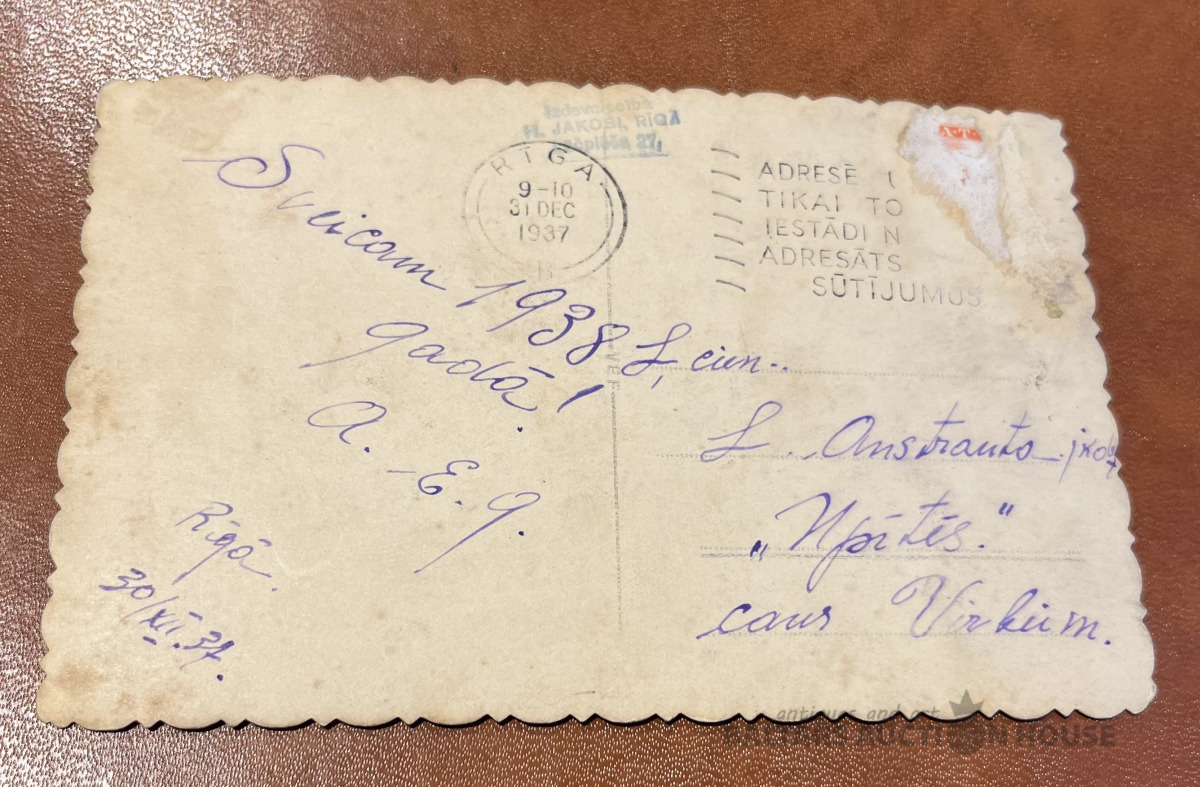 Izdevniecība
H. JAKOBI, RĪGĀ
27,
RĪGA
9-10
31 DEC
1937
B
ADRESĒ
TIKAI TO
IESTĀDI N
ADRESĀTS
SŪTĪJUMUS
A.T.
Sveicam 1938
gadā!
A. - E. G.
Rīgā.
30/XII.37.
L. cien..
L. Anstrauta
„Upītēs."
caur Virkum.
antiques and art
BALTARS AUCTION HOUSE